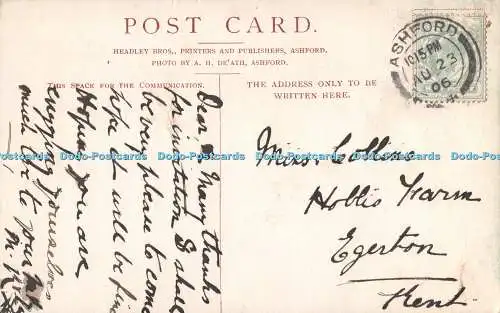 POST CARD.
HEADLEY BROS., PRINTERS AND PUBLISHERS, ASHFORD.
PHOTO BY A. H. DE'ATH, ASHFORD.
THIS SPACE FOR THE COMMUNICATION.
THE ADDRESS ONLY TO BE
WRITTEN HERE.
ASHFORD
10.15 PM
AU 23
06
Miss Collins
Hollis Farm
Egerton
Kent
Dear Mary thanks
for invitation I shall
be very please to come
hope it will be fine
Hoping you are
enjoying yourselves
much love to your
Dodo-Postcards Dodo-Postcards Dodo-Postcards Dodo-Postcards Dodo-Postcards Dodo-Postcards